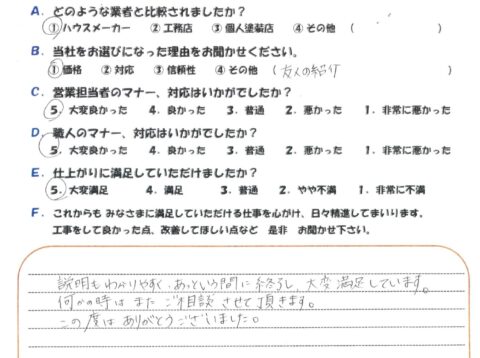 A. どのような業者と比較されましたか?
① ハウスメーカー ② 工務店 ③ 個人塗装店 ④ その他 ( )
B. 当社をお選びになった理由をお聞かせください。
① 価格 ② 対応 ③ 信頼性 ④ その他 (友人の紹介 )
C. 営業担当者のマナー、対応はいかがでしたか?
5. 大変良かった 4. 良かった 3. 普通 2. 悪かった 1. 非常に悪かった
D. 職人のマナー、対応はいかがでしたか?
5. 大変良かった 4. 良かった 3. 普通 2. 悪かった 1. 非常に悪かった
E. 仕上がりに満足していただけましたか?
5. 大変満足 4. 満足 3. 普通 2. やや不満 1. 非常に不満
F. これからも みなさまに満足していただける仕事を心がけ、日々精進してまいります。
工事をして良かった点、改善してほしい点など 是非 お聞かせ下さい。
説明もわかりやすく、あっという間に終了し、大変満足しています。
何かの時は また ご相談 させて頂きます。
この度は ありがとうございました。